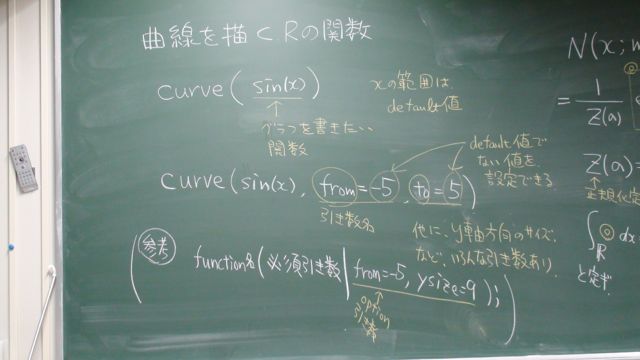 曲線を描くRの関数
curve(sin(x))
グラフを書きたい
関数
xの範囲は
default値
curve(sin(x), from=-5, to=5)
引き数名
default値で
ない値を
設定できる
他に、y軸方向のサイズ、
など、いろんな引き数あり
参考
function名(必須引き数|from=-5, ysize=9);
option
引き数
N(x;
= 1
Z(a)
Z(a)=
正規化定
∫R dx
と定